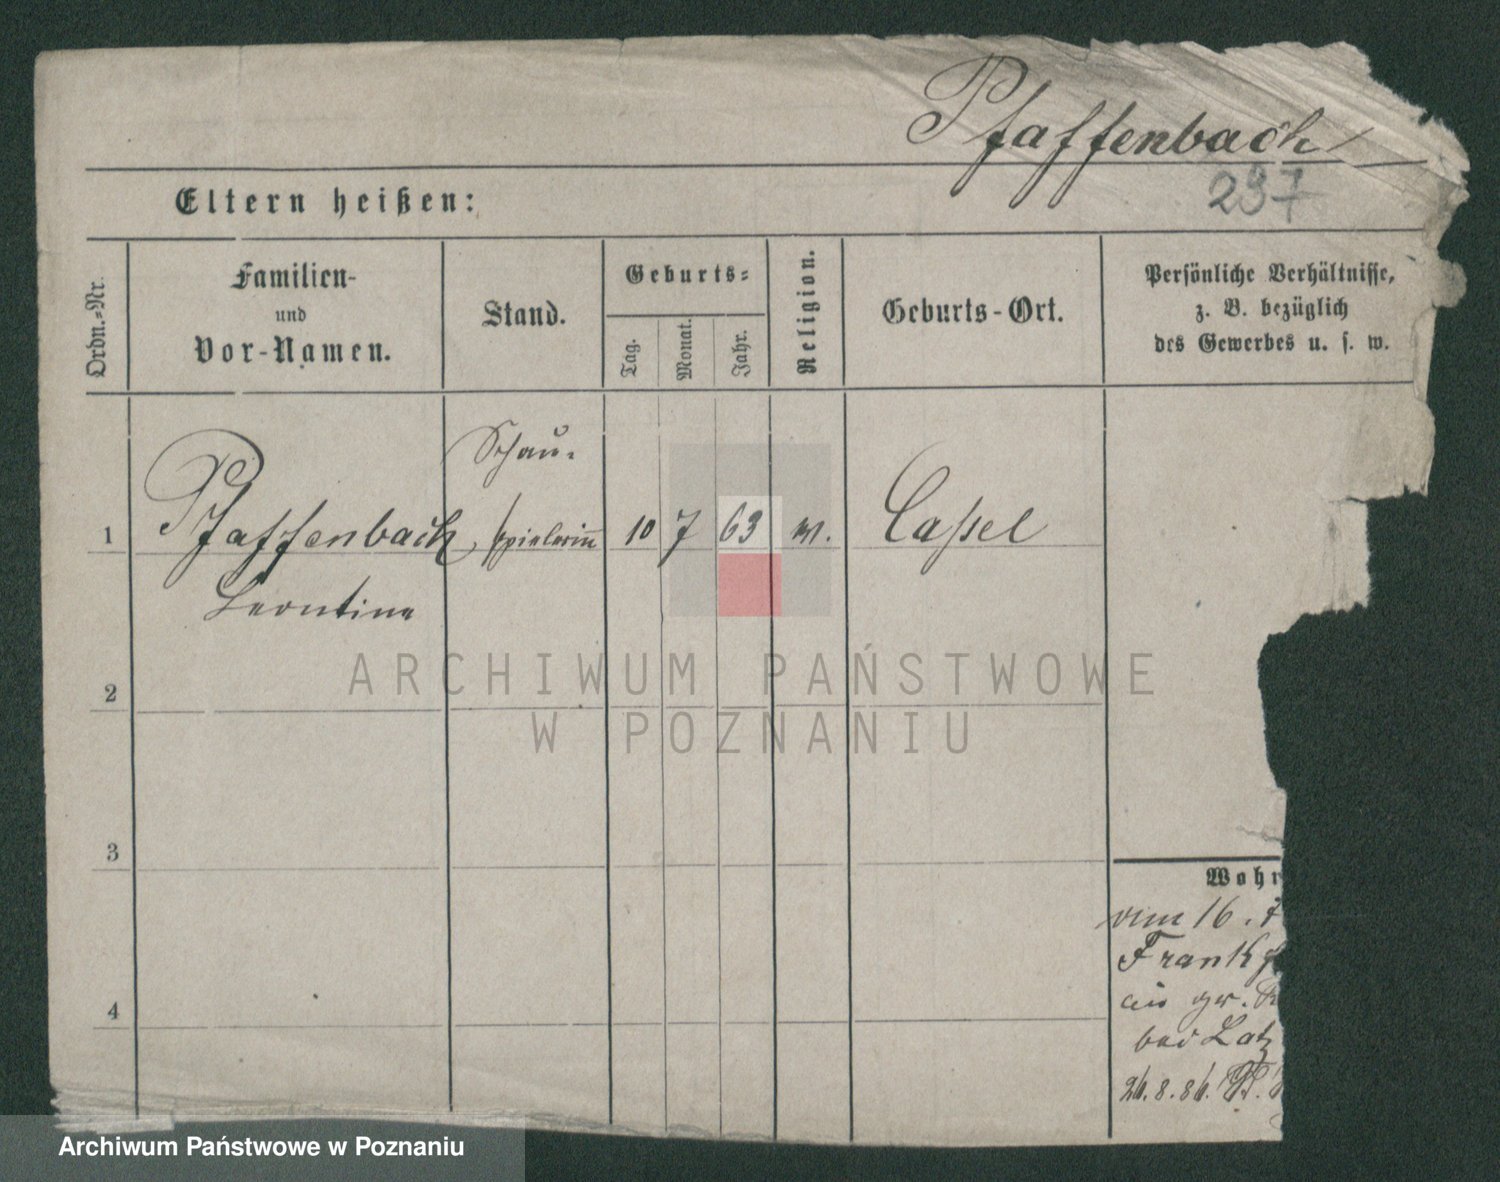 Pfaffenbach
237
Eltern heißen:
Ordn.-Nr.
Familien-
und
Vor-Namen.
Stand.
Geburts-
Tag.
Monat.
Jahr.
Religion.
Geburts-Ort.
Persönliche Verhältnisse,
z. B. bezüglich
des Gewerbes u. s. w.
Schau-
1 Pfaffenbach, spielerin 10 7 63 Cassel
Leontine
2
3
4
Wohn
vom 16.
Frankf
bei Latz
26.8.86.
ARCHIWUM PAŃSTWOWE
W POZNANIU
Archiwum Państwowe w Poznaniu